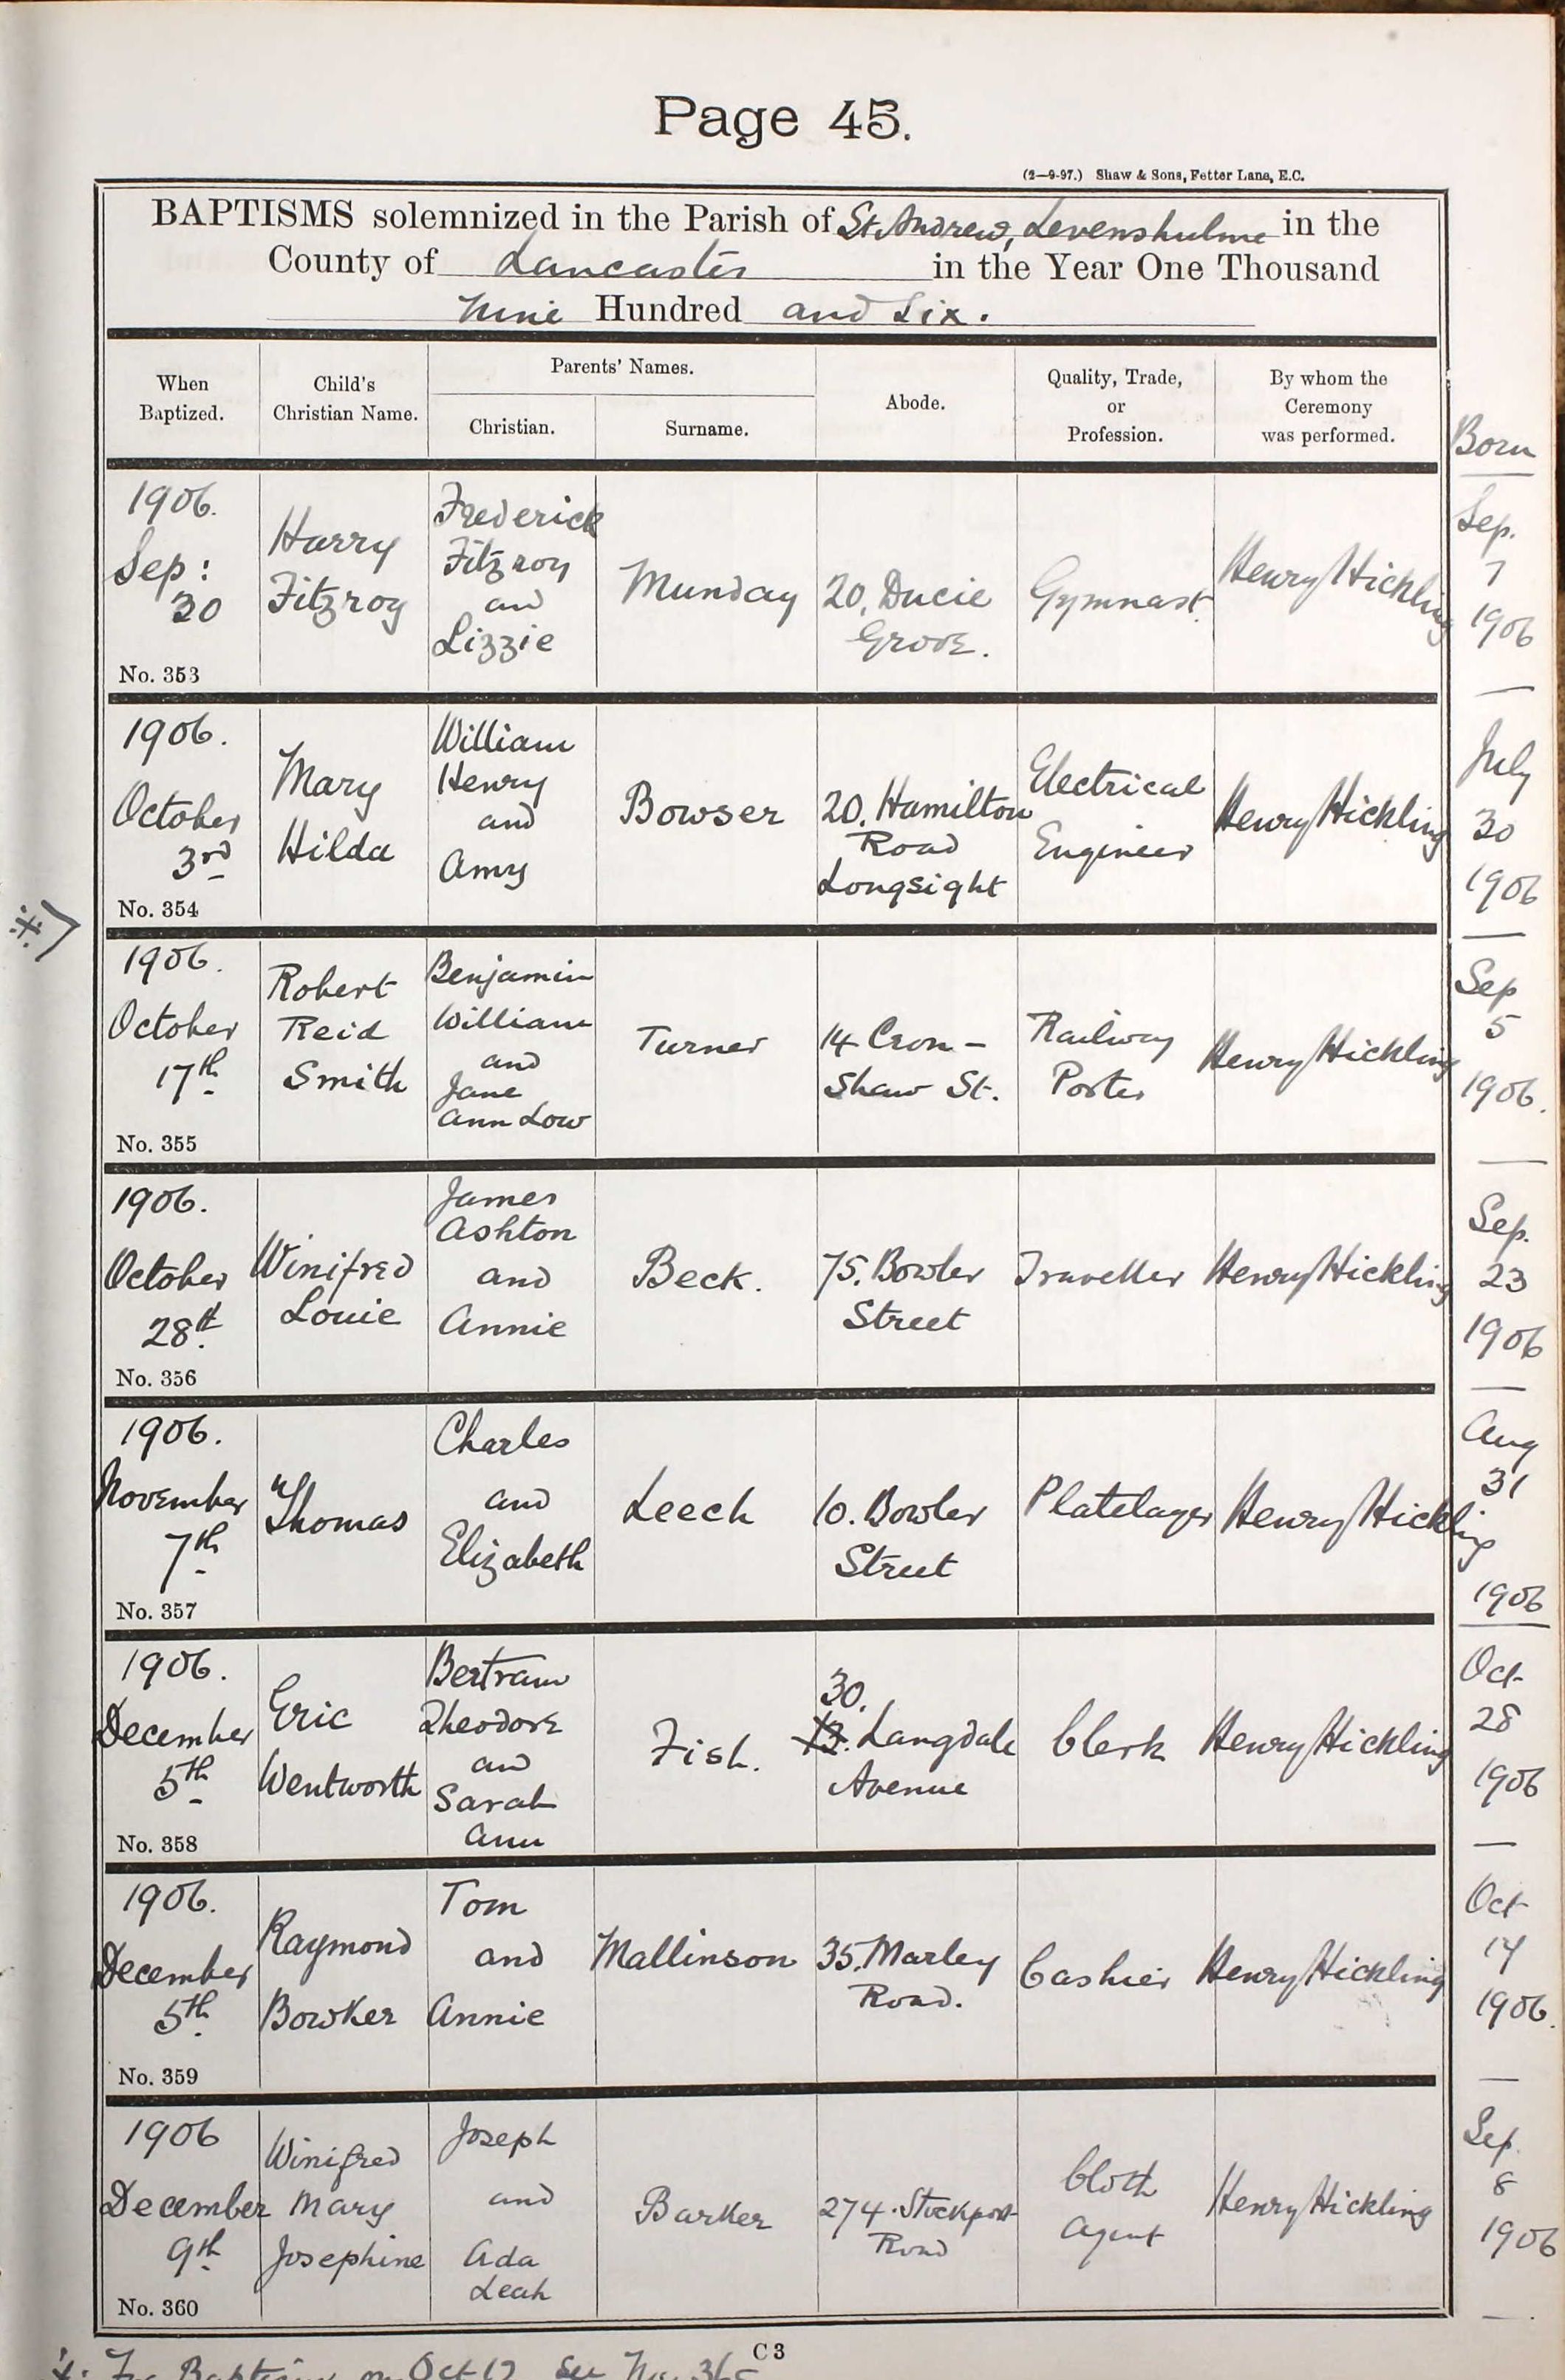 Page 45.
(2—9-97.) Shaw & Sons, Fetter Lane, E.C.
BAPTISMS solemnized in the Parish of St. Andrew, Levenshulme in the
County of Lancaster in the Year One Thousand
Nine Hundred and Six.
When Baptized.
Child's Christian Name.
Parents' Names.
Christian.
Surname.
Abode.
Quality, Trade, or Profession.
By whom the Ceremony was performed.
Born
1906.
Sep:
30
No. 353
Harry
Fitzroy
Frederick
Fitzroy
and
Lizzie
Munday
20, Ducie
Grove.
Gymnast.
Henry Hickling
Sep.
7
1906
1906.
October
3rd
No. 354
Mary
Hilda
William
Henry
and
Amy
Bowser
20. Hamilton
Road
Longsight
Electrical
Engineer
Henry Hickling
July
30
1906
1906.
October
17th
No. 355
Robert
Reid
Smith
Benjamin
William
and
Jane
Ann Low
Turner
14 Cron-
shaw St.
Railway
Porter
Henry Hickling
Sep
5
1906.
1906.
October
28th
No. 356
Winifred
Louie
James
Ashton
and
Annie
Beck.
75. Bowler
Street
Traveller
Henry Hickling
Sep.
23
1906
1906.
November
7th
No. 357
Thomas
Charles
and
Elizabeth
Leech
10. Bowler
Street
Platelayer
Henry Hickling
Aug
31
1906
1906.
December
5th
No. 358
Eric
Wentworth
Bertram
Theodore
and
Sarah
Ann
Fish.
30.
13. Langdale
Avenue
Clerk
Henry Hickling
Oct
28
1906
1906.
December
5th
No. 359
Raymond
Bowker
Tom
and
Annie
Mallinson
35. Marley
Road.
Cashier
Henry Hickling
Oct
14
1906.
1906
December
9th
No. 360
Winifred
Mary
Josephine
Joseph
and
Ada
Leah
Barker
274. Stockport
Road
Cloth
Agent
Henry Hickling
Sep.
8
1906
C 3
For Baptism on Oct 17 See No.